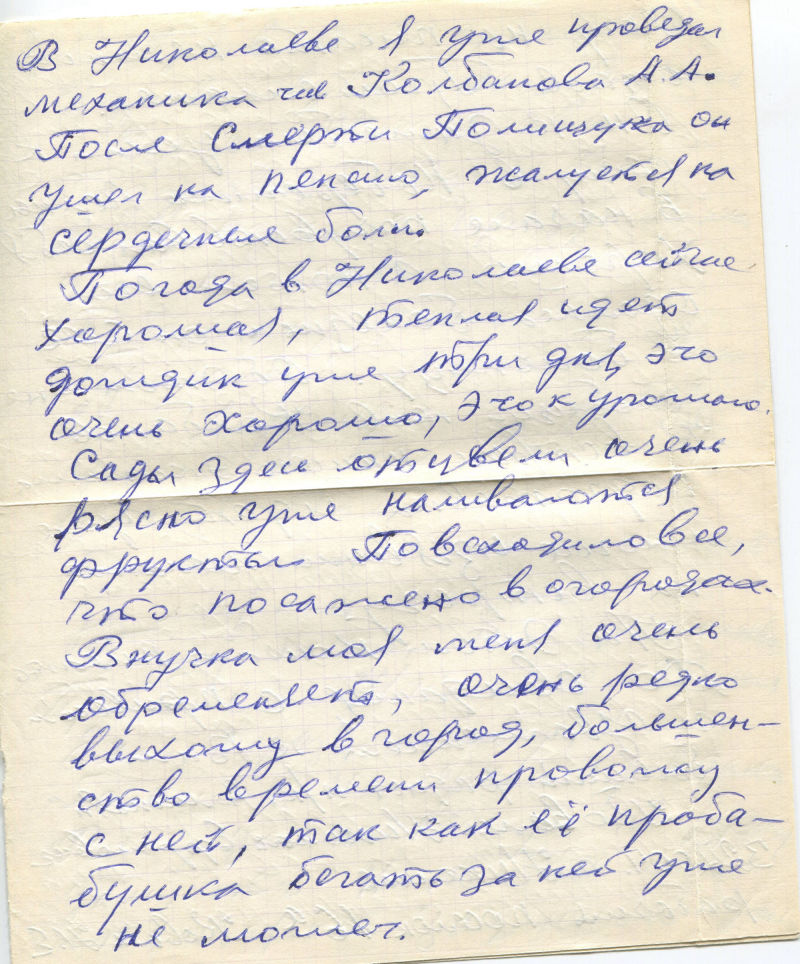 В Николаеве я уже проведал
механика Колбанова А.А.
После смерти Полищука он
ушел на пенсию, жалуется на
сердечные боли.
Погода в Николаеве сейчас
хорошая, теплая идет
дождик уже три дня, это
очень хорошо, это к урожаю.
Сады здесь отцвели очень
рясно уже наливаются
фрукты. Повсходило все,
что посажено в огородах.
Внучка моя меня очень
обременяет, очень редко
выхожу в город, большен-
ство времени провожу
с ней, так как её праба-
бушка бегать за ней уже
не может.